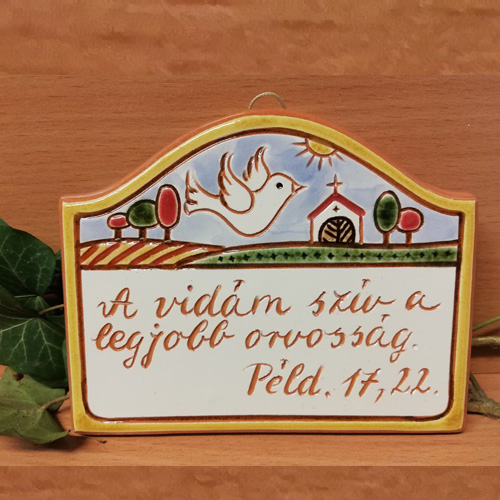 A vidám szív a
legjobb orvosság.
Péld. 17,22.